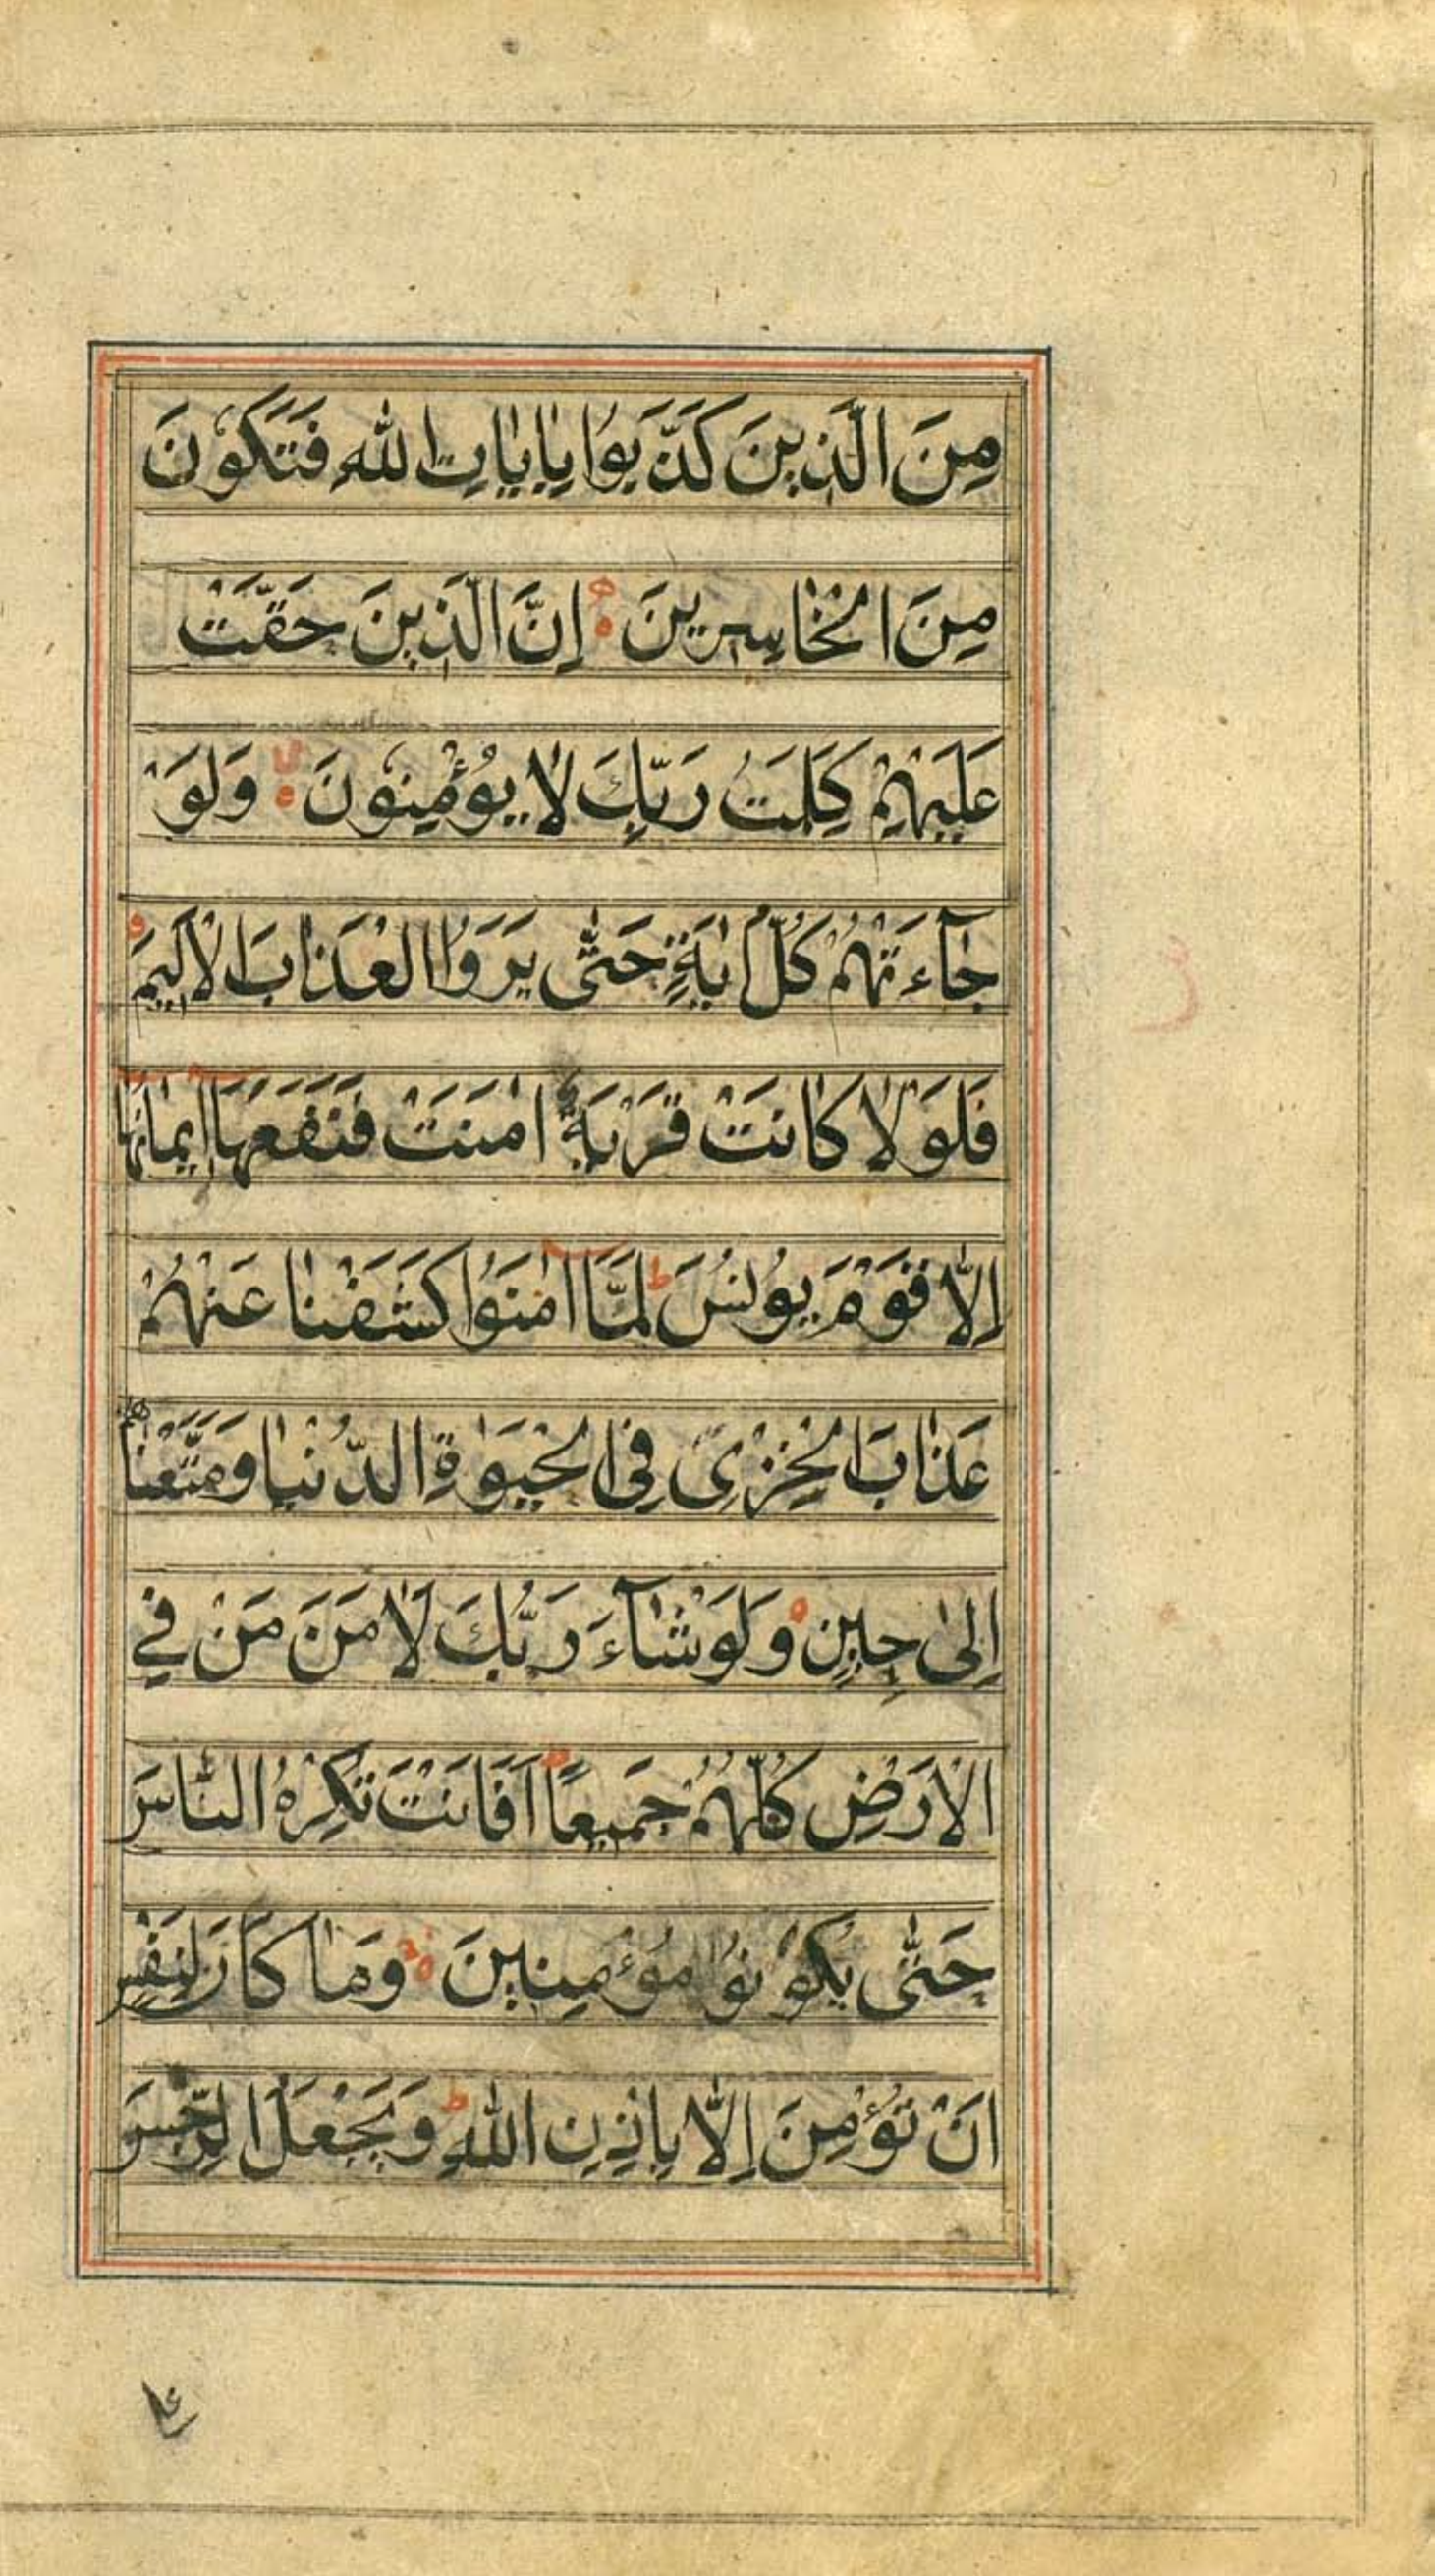 مِنَ الَّذِينَ كَذَّبُوا بِاٰيَاتِ اللهِ فَتَكُوْنَ
مِنَ الْخَاسِرِينَ اِنَّ الَّذِينَ حَقَّتْ
عَلَيْهِمْ كَلِمَتُ رَبِّكَ لَا يُؤْمِنُوْنَ وَلَوْ
جَآءَتْهُمْ كُلُّ اٰيَةٍ حَتّٰى يَرَوُا الْعَذَابَ الْاَلِيمَ
فَلَوْلَا كَانَتْ قَرْيَةٌ اٰمَنَتْ فَنَفَعَهَا اِيمَانُهَا
اِلَّا قَوْمَ يُونُسَ ط لَمَّا اٰمَنُوا كَشَفْنَا عَنْهُمْ
عَذَابَ الْخِزْيِ فِي الْحَيٰوةِ الدُّنْيَا وَمَتَّعْنَاهُمْ
اِلٰى حِينٍ وَلَوْ شَآءَ رَبُّكَ لَاٰمَنَ مَنْ فِي
الْاَرْضِ كُلُّهُمْ جَمِيعًا اَفَاَنْتَ تُكْرِهُ النَّاسَ
حَتّٰى يَكُوْنُوْا مُؤْمِنِينَ وَمَا كَانَ لِنَفْسٍ
اَنْ تُؤْمِنَ اِلَّا بِاِذْنِ اللهِ ط وَيَجْعَلُ الرِّجْسَ